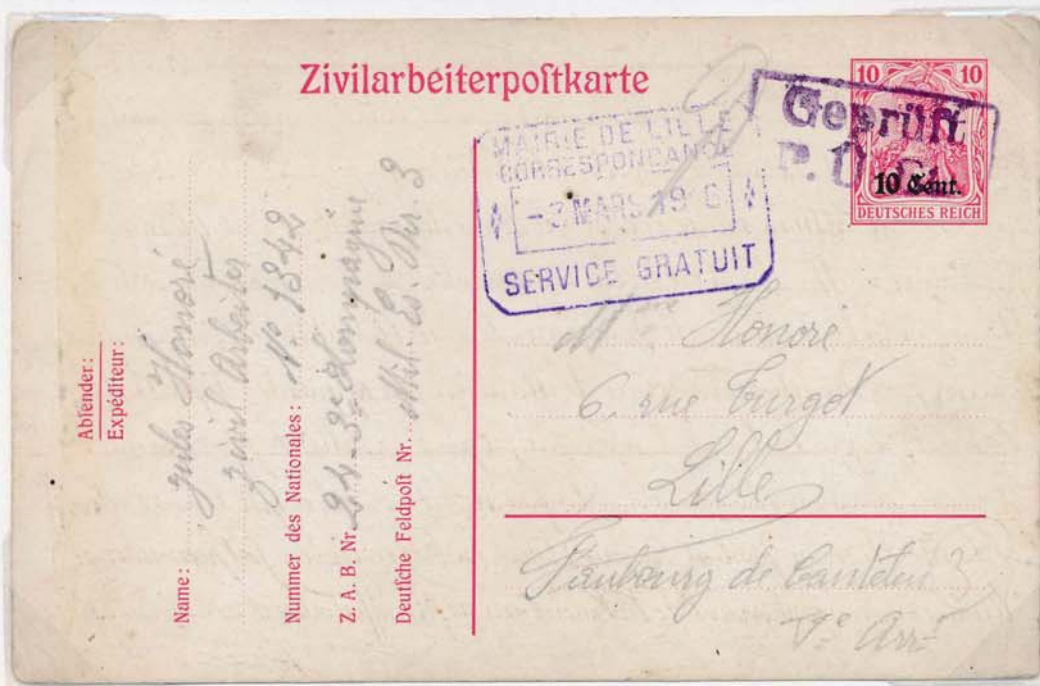 Zivilarbeiterpostkarte
10 10
10 Cent.
DEUTSCHES REICH
Geprüft
MAIRIE DE LILLE
CORRESPONDANCE
MARS 19
SERVICE GRATUIT
Absender:
Expéditeur:
Name: Jules Honoré
Zivil Arbeiter
Nummer des Nationales: N° 1342
Z. A. B. Nr. 3e
Deutsche Feldpost Nr. 3
Mme Honoré
6. rue Turgot
Lille
Faubourg de Canteleu